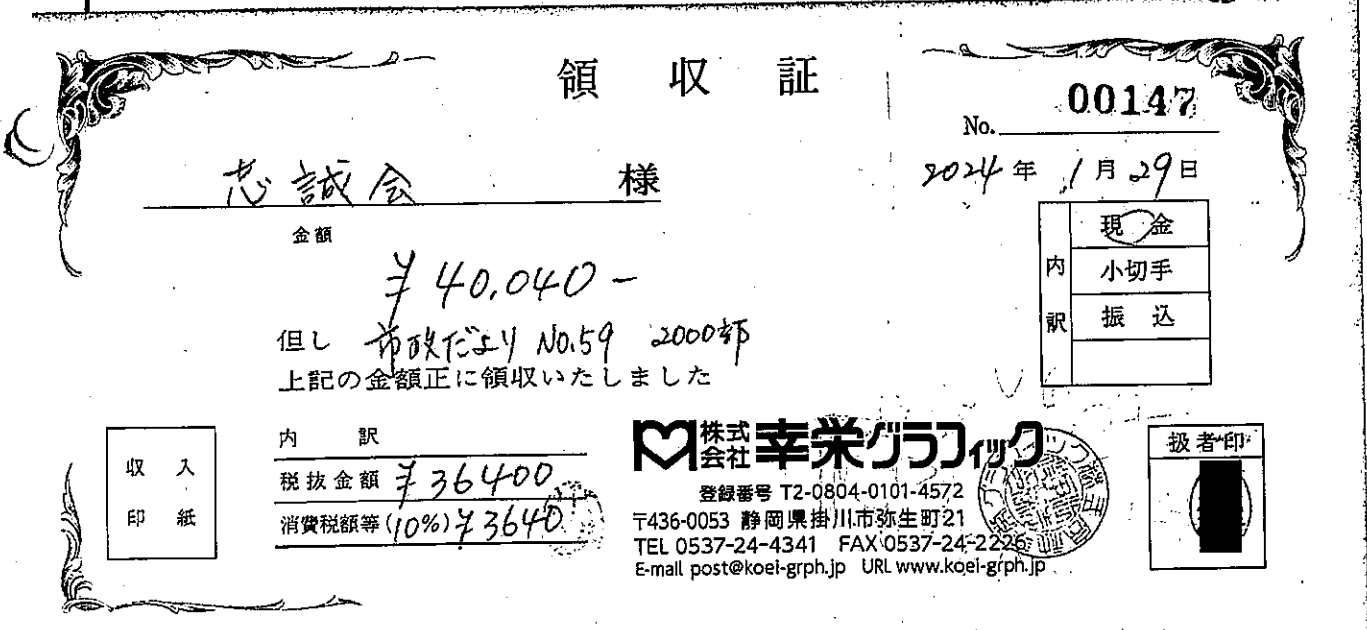 領収証
No. 00147
2024年 1月29日
志誠会 様
金額
¥40,040-
但し 市政だより No.59 2000部
上記の金額正に領収いたしました
内訳
現金
小切手
振込
収入
印紙
内訳
税抜金額 ¥36400
消費税額等(10%) ¥3640
株式会社 幸栄グラフィック
登録番号 T2-0804-0101-4572
〒436-0053 静岡県掛川市弥生町21
TEL 0537-24-4341 FAX 0537-24-2226
E-mail post@koei-grph.jp URL www.koei-grph.jp
扱者印